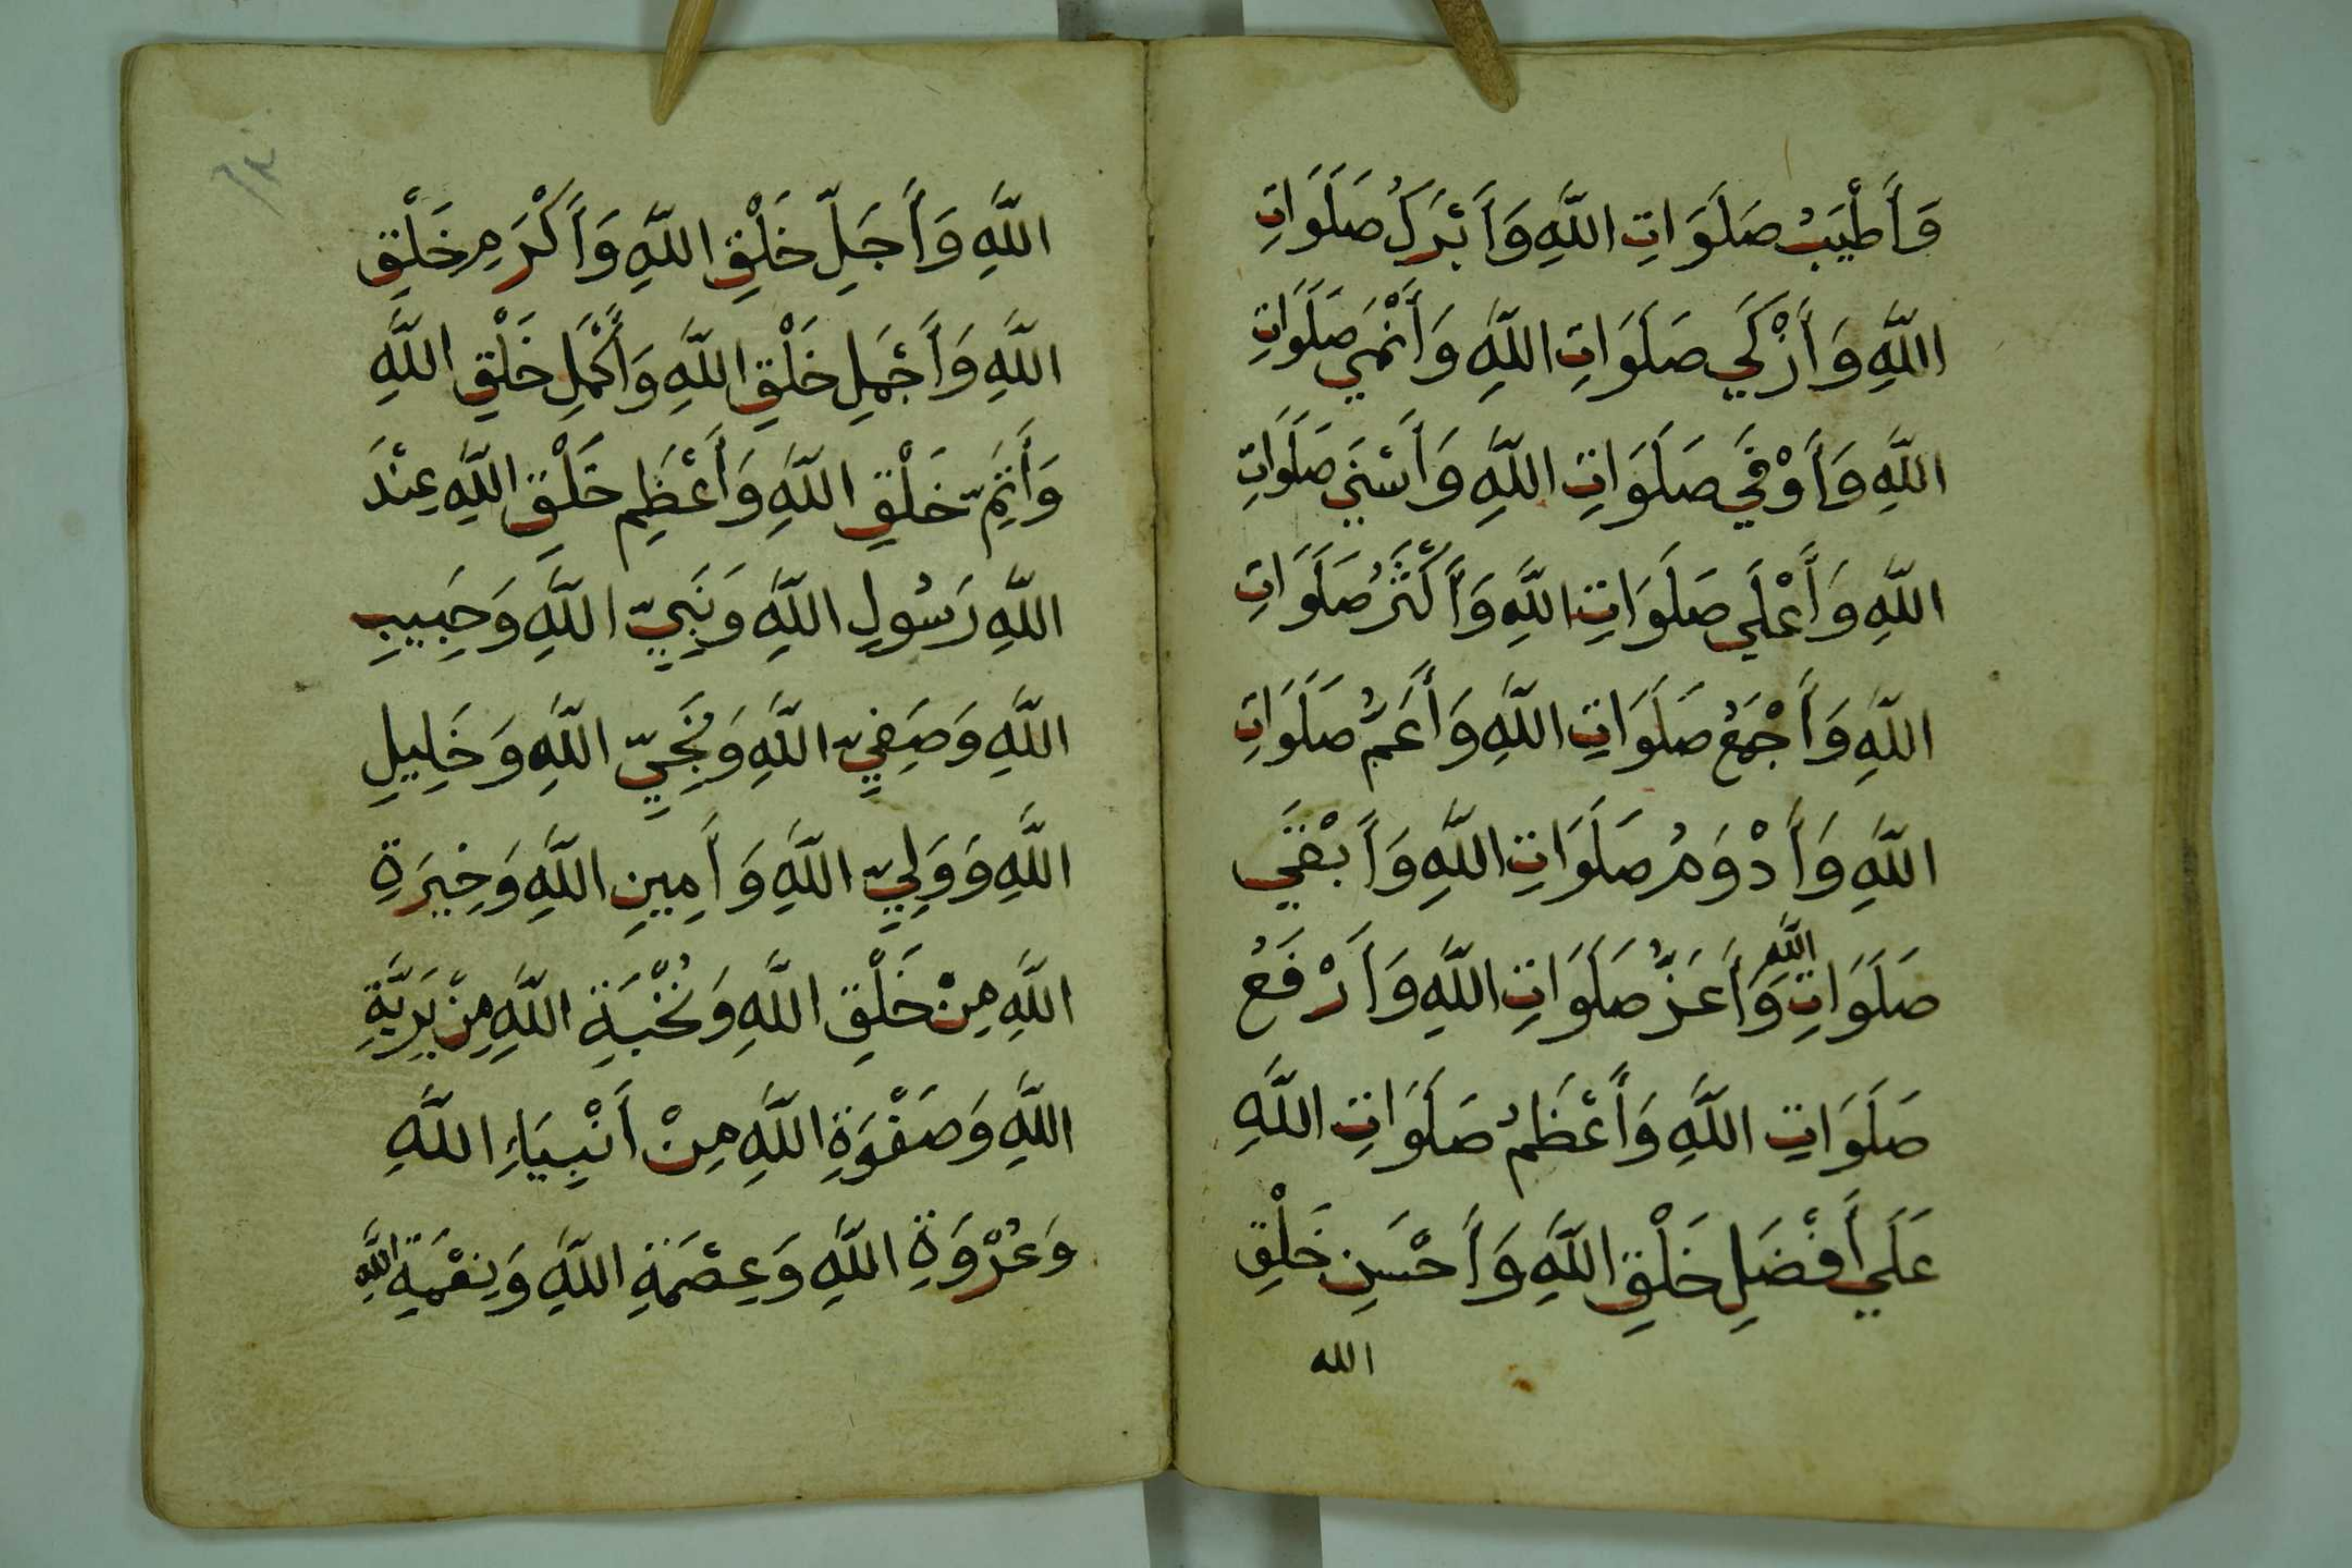 وَأَطْيَبُ صَلَوَاتِ اللَّهِ وَأَبْرَكُ صَلَوَاتِ
اللَّهِ وَأَزْكَي صَلَوَاتِ اللَّهِ وَأَنْمَي صَلَوَاتِ
اللَّهِ وَأَوْفَي صَلَوَاتِ اللَّهِ وَأَسْنَي صَلَوَاتِ
اللَّهِ وَأَعْلَي صَلَوَاتِ اللَّهِ وَأَكْثَرُ صَلَوَاتِ
اللَّهِ وَأَجْمَعُ صَلَوَاتِ اللَّهِ وَأَعَمُّ صَلَوَاتِ
اللَّهِ وَأَدْوَمُ صَلَوَاتِ اللَّهِ وَأَبْقَي
صَلَوَاتِ اللَّهِ وَأَعَزُّ صَلَوَاتِ اللَّهِ وَأَرْفَعُ
صَلَوَاتِ اللَّهِ وَأَعْظَمُ صَلَوَاتِ اللَّهِ
عَلَي أَفْضَلِ خَلْقِ اللَّهِ وَأَحْسَنِ خَلْقِ
الله
اللَّهِ وَأَجَلِّ خَلْقِ اللَّهِ وَأَكْرَمِ خَلْقِ
اللَّهِ وَأَجْمَلِ خَلْقِ اللَّهِ وَأَكْمَلِ خَلْقِ اللَّهِ
وَأَتَمِّ خَلْقِ اللَّهِ وَأَعْظَمِ خَلْقِ اللَّهِ عِنْدَ
اللَّهِ رَسُولِ اللَّهِ وَنَبِيِّ اللَّهِ وَحَبِيبِ
اللَّهِ وَصَفِيِّ اللَّهِ وَنَجِيِّ اللَّهِ وَخَلِيلِ
اللَّهِ وَوَلِيِّ اللَّهِ وَأَمِينِ اللَّهِ وَخِيرَةِ
اللَّهِ مِنْ خَلْقِ اللَّهِ وَنُخْبَةِ اللَّهِ مِنْ بَرِيَّةِ
اللَّهِ وَصَفْوَةِ اللَّهِ مِنْ أَنْبِيَاءِ اللَّهِ
وَعُرْوَةِ اللَّهِ وَعِصْمَةِ اللَّهِ وَنِعْمَةِ اللَّهِ